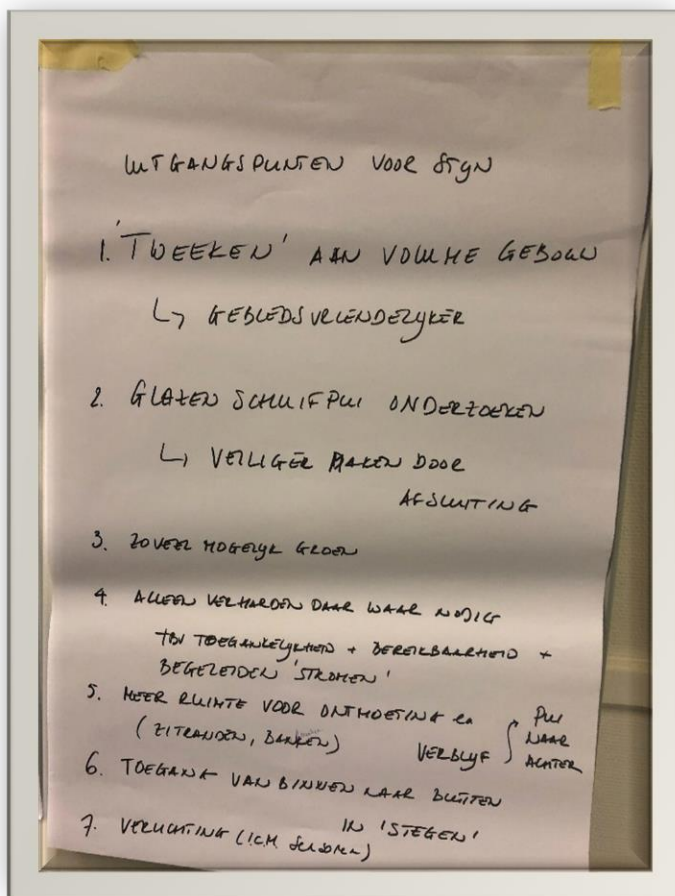 UITGANGSPUNTEN VOOR STIJN
1. 'TWEEKEN' AAN VOLUME GEBOUW
↳ GEBIEDSVRIENDELIJKER
2. GLAZEN SCHUIFPUI ONDERZOEKEN
↳ VEILIGER MAKEN DOOR
AFSLUITING
3. ZOVEEL MOGELIJK GROEN
4. ALLEEN VERHARDEN DAAR WAAR NODIG
TBV TOEGANKELIJKHEID + BEREIKBAARHEID +
BEGELEIDEN 'STROMEN'
5. MEER RUIMTE VOOR ONTMOETING en
(ZITRANDEN, BANKEN) VERBLIJF
PUI
NAAR
ACHTER
6. TOEGANG VAN BINNEN NAAR BUITEN
IN 'STEGEN'
7. VERLICHTING (I.C.M.